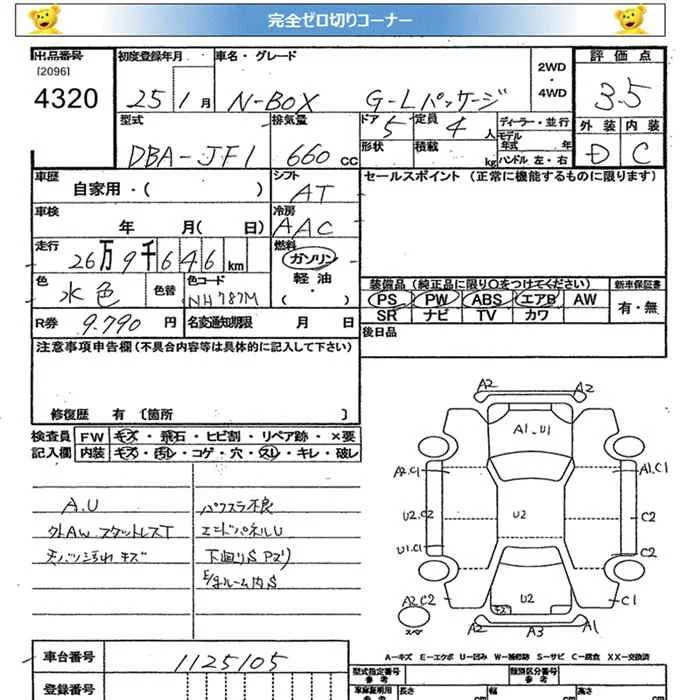 完全ゼロ切りコーナー
出品番号 初度登録年月 車名・グレード 評価点
[2096] 2WD・4WD
4320 25 1月 N-BOX G-Lパッケージ 3.5
型式 排気量 ドア 定員 ディーラー・並行 外装 内装
DBA-JF1 660 cc 5 4人 モデル年式 年 D C
形状 積載 kg ハンドル 左・右
車歴 シフト セールスポイント (正常に機能するものに限ります)
自家用・( ) AT
車検 冷房
年 月( 日) AAC
走行 燃料
26万9千646km ガソリン
軽油
・( )
装備品 (純正品に限り○をつけてください) 新車保証書
色 色替 色コード PS PW ABS エアB AW 有・無
水色 NH787M SR ナビ TV カワ
R券 9.790 円 名変通知期限 月 日 後日品
注意事項申告欄 (不具合内容等は具体的に記入して下さい)
修復歴 有 [箇所 ]
検査員 FW キズ・飛石・ヒビ割・リペア跡・×要
記入欄 内装 キズ・汚レ・コゲ・穴・スレ・キレ・破レ
A.U パワスラ不良
外AW.スタットレスT エンドパネルU
天バリ汚れ キズ 下廻りS Pズリ
E/gルーム内S
A2 A2
A1.U1
A2.C1 A1.C1
U2.C2 U2 C2
U1.C1
A2C2 キズ U2 C1
スペア A2 A3 A1
A-キズ E-エクボ U-凹み W-補修跡 S-サビ C-腐食 XX-交換済
車台番号 1125105
登録番号 型式指定番号 参考 類別区分番号 参考
車庫証明用 参考 長さ cm 幅 cm 高さ cm